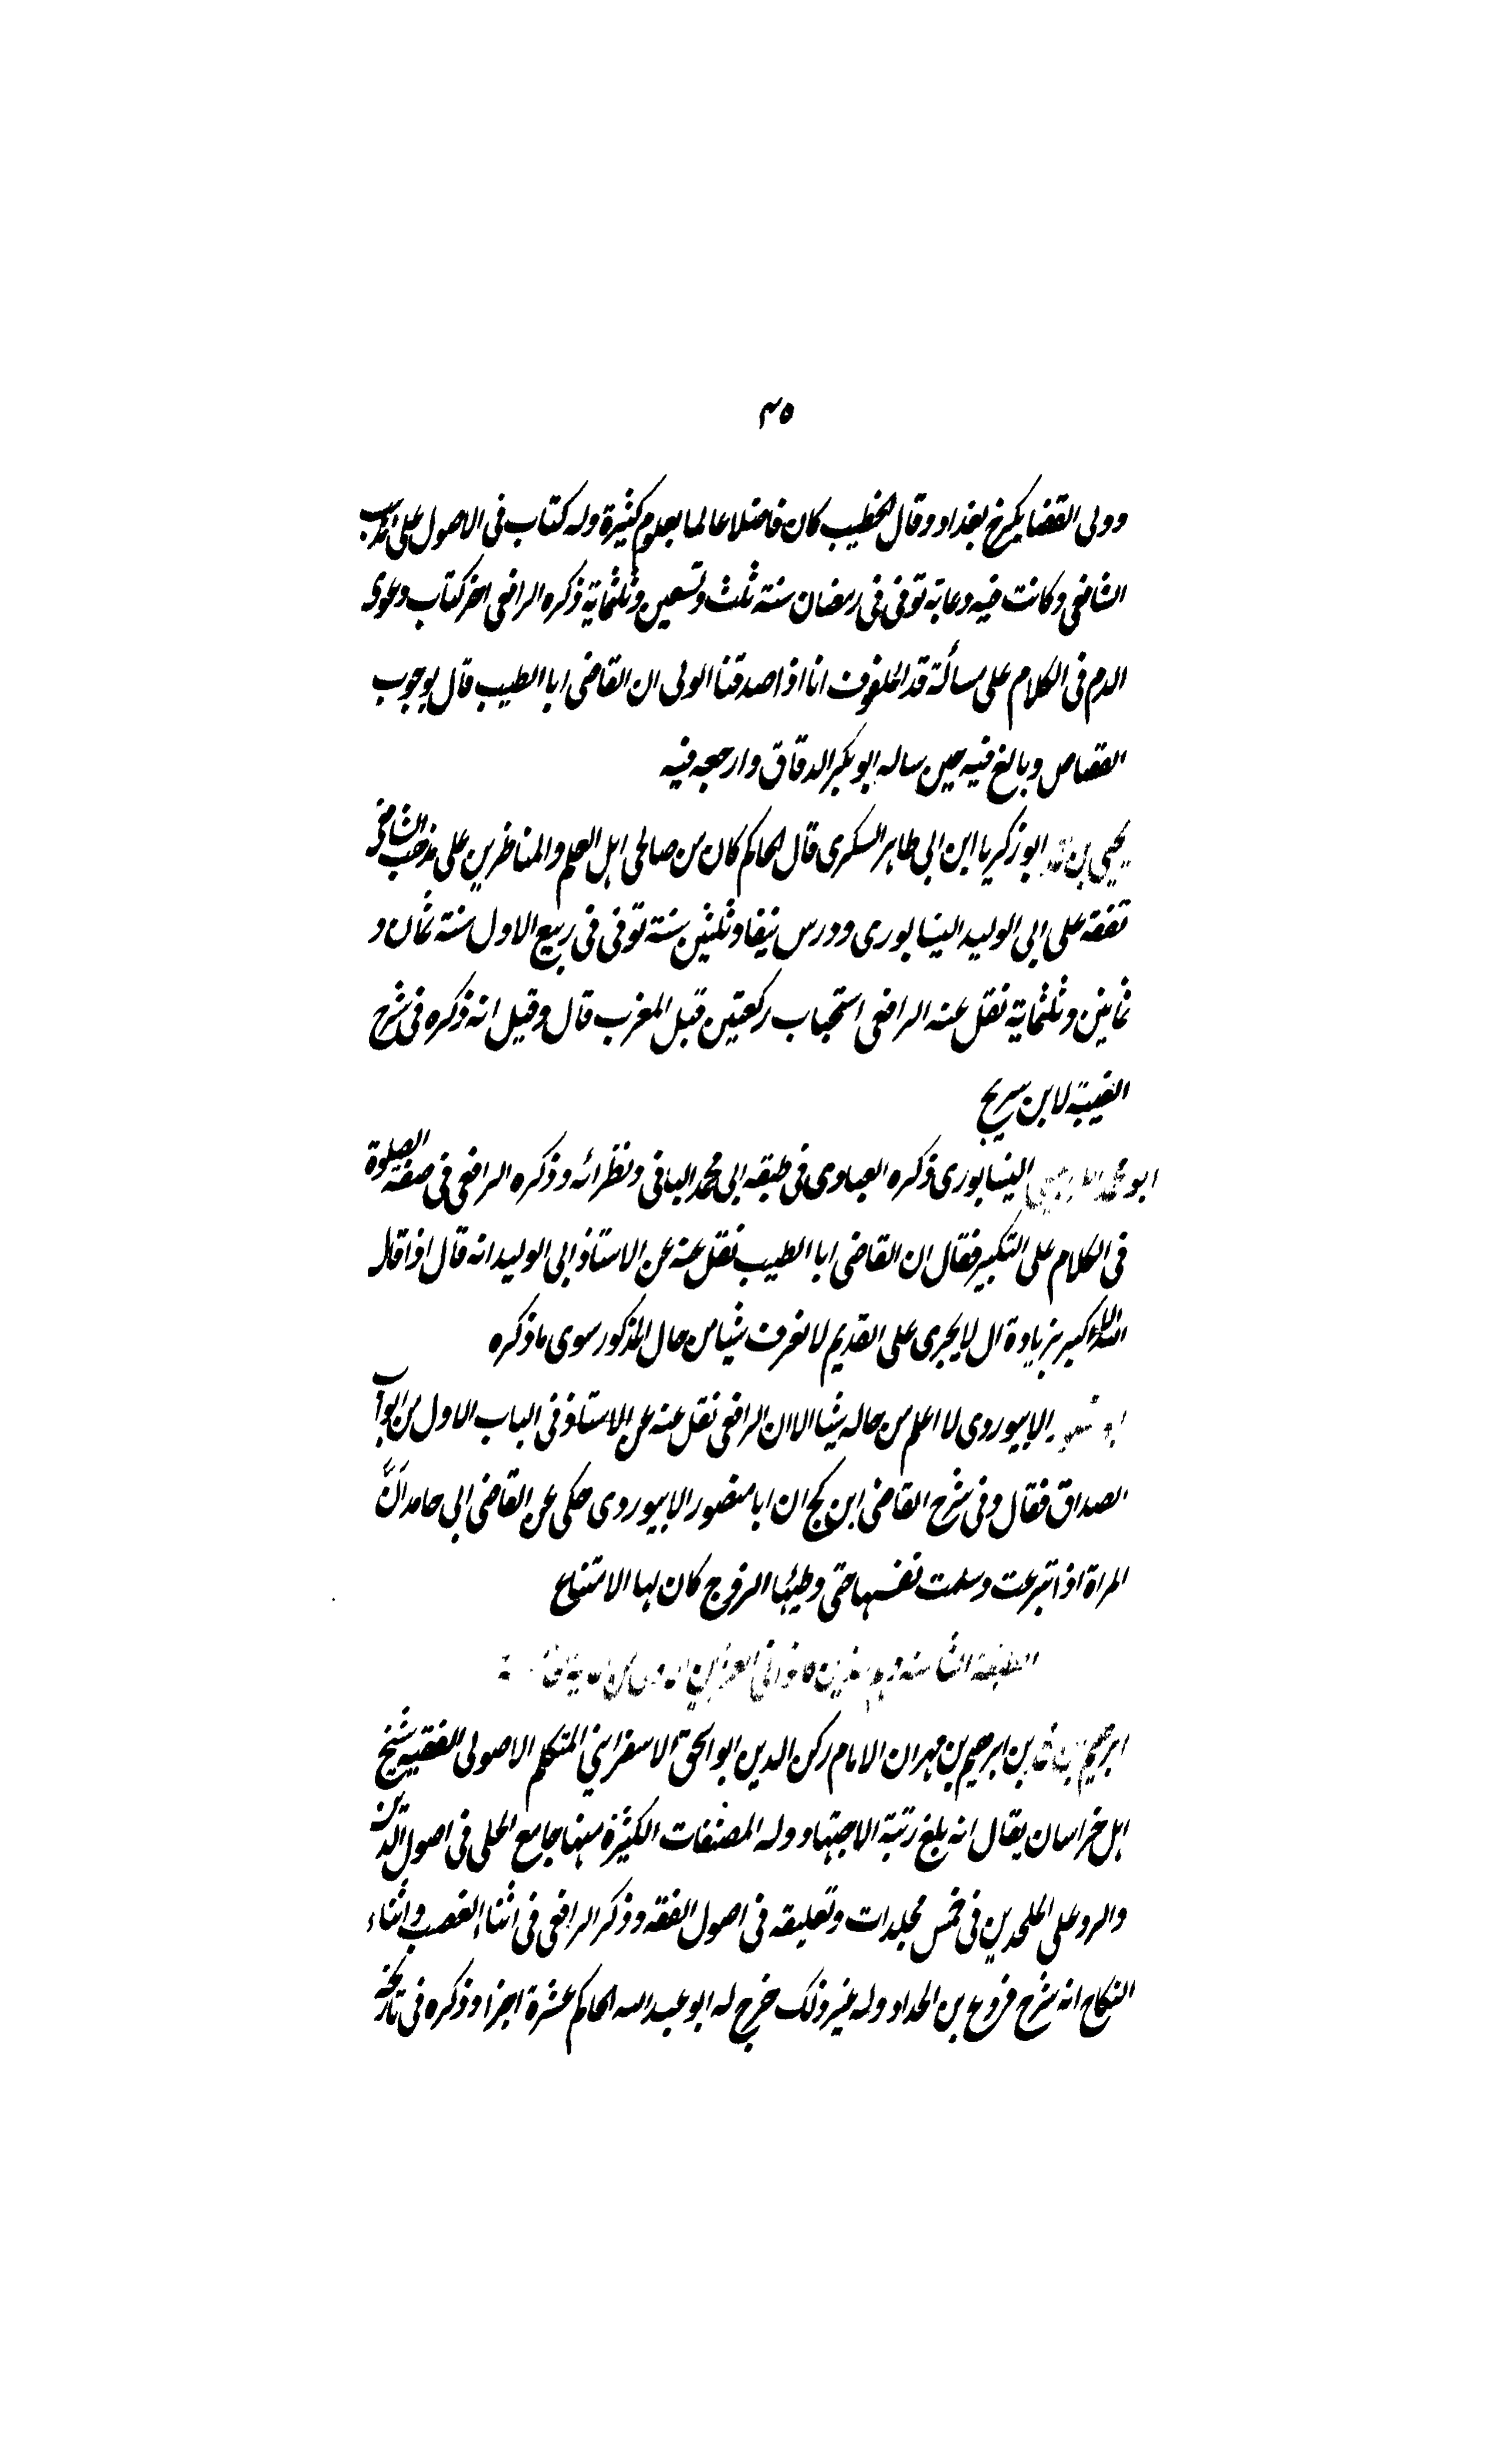 ٣٥
وولى القضا بكرخ بغداد وقال الخطيب كان فاضلا عالما بعلوم كثيرة وله كتاب فى الاصول على مذهب
الشافعى وكانت فيه دعابة توفى فى رمضان سنة ثلث وتسعين وثلثماية ذكره الرافعى اخر كتاب دعوى
الدم فى الكلام على مسألة قد الملفوف انا اذا صدقنا الولى ان القاضى ابا الطيب قال بوجوب
القصاص وبالغ فيه حين ساله ابو بكر الدقاق وارجعه فيه
يحيى بن ابو زكريا ابن ابى طاهر السكرى قال الحاكم كان من صالحى اهل العلم والمناظرين على مذهب الشافعى
تفقه على ابى الوليد النيسابورى ودرس نيفا وثلثين سنة توفى فى ربيع الاول سنة ثمان و
ثمانين وثلثماية نقل عنه الرافعى استحباب ركعتين قبل المغرب قال وقيل انه ذكره فى شرح
الغيبة لابن سريج
ابو محمد النيسابورى ذكره العبادى فى طبقه ابى محمد البافى ونظرائه وذكره الرافعى فى صفة الصلوة
فى الكلام على التكبير فقال ان القاضى ابا الطيب نقل عنه عن الاستاذ ابى الوليد انه قال اذا قال
الله الاكبر بزيادة ال لا يجرى على القديم لا نعرف شيا من حال المذكور سوى ما ذكره
الابيوردى لا اعلم من حاله شيا الا ان الرافعى نقل عنه عن الاستاذ فى الباب الاول من ابواب
الصداق فقال وفى شرح القاضى ابن كج ان ابا منصور الابيوردى حكى عن القاضى ابى حامد انّ
المراة اذا تبرعت وسلمت نفسها حتى وطيها الزوج كان لها الامتناع
الطبقة الثامنة
ابرهيم بن بن ابرهيم بن مهران الامام ركن الدين ابو اسحق الاسفراينى المتكلم الاصولى الفقيه شيخ
اهل خراسان يقال انه بلغ رتبة الاجتهاد وله المصنفات الكثيرة منها جامع الحلى فى اصول الدين
والرد على الملحدين فى خمس مجلدات وتعليقه فى اصول الفقه وذكر الرافعى فى اثناء الغصب واثناء
النكاح انه شرح فروع بن الحداد وله غير ذلك خرج له ابو عبد الله الحاكم عشرة اجزا وذكره فى تاريخه